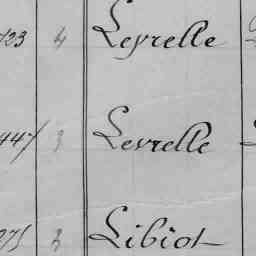 123 4 Leyrelle
447 3 Levrelle
275 3 Libiot